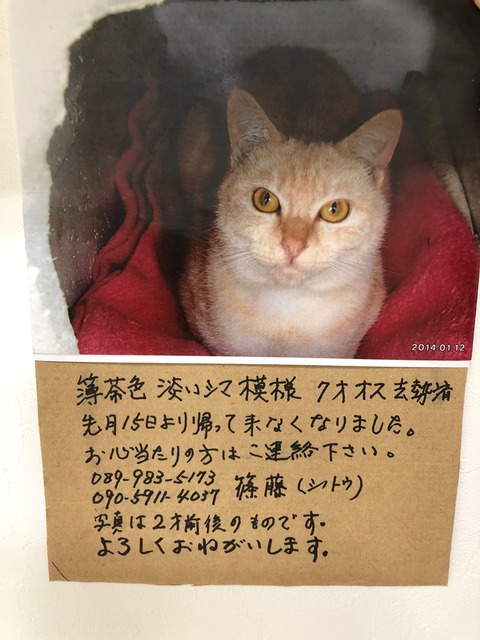 2014.01.12
薄茶色 淡いシマ模様 クオオス去勢済
先月15日より帰って来なくなりました。
お心当たりの方はご連絡下さい。
089-983-5173
090-5911-4037 篠藤(シノトウ)
写真は2才前後のものです。
よろしくおねがいします。